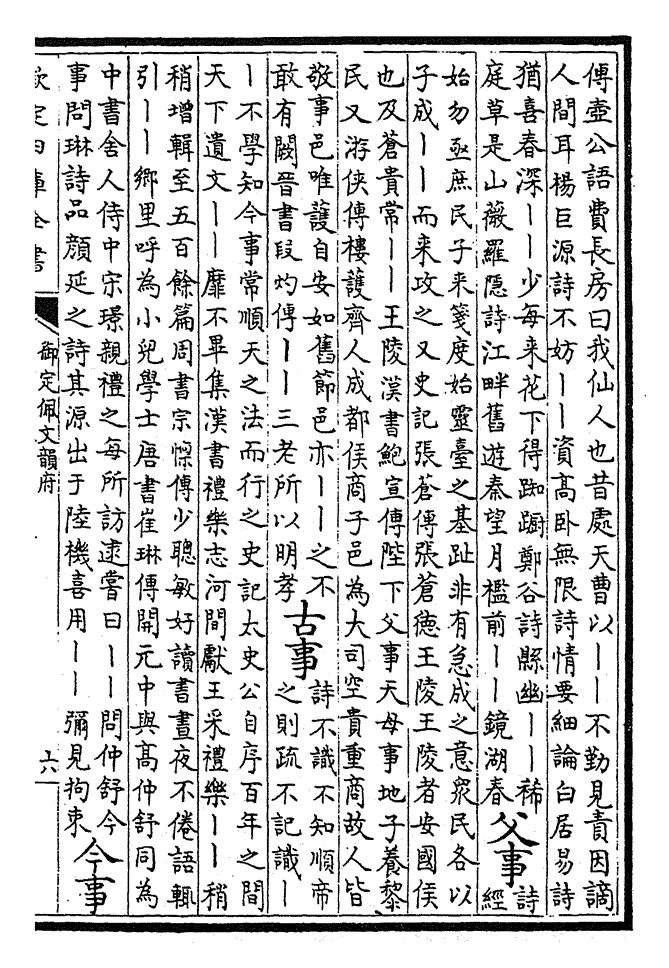 傅壺公語費長房曰我仙人也昔處天曹以丨丨不勤見責因謫
人間耳楊巨源詩不妨丨丨資高卧無限詩情要細論白居易詩
猶喜春深丨丨少每来花下得踟蹰鄭谷詩縣幽丨丨稀
庭草是山薇羅隱詩江畔舊遊秦望月檻前丨丨鏡湖春
父事
詩
經
始勿亟庶民子来箋度始靈臺之基趾非有急成之意衆民各以
子成丨丨而来攻之又史記張蒼傳張蒼徳王陵王陵者安國侯
也及蒼貴常丨丨王陵漢書鮑宣傳陛下父事天母事地子養黎
民又游俠傳樓護齊人成都侯商子邑為大司空貴重商故人皆
敬事邑唯護自安如舊節邑亦丨丨之不
敢有闕晉書段灼傳丨丨三老所以明孝
古事
詩不識不知順帝
之則疏不記識丨
丨不學知今事常順天之法而行之史記太史公自序百年之間
天下遺文丨丨靡不畢集漢書禮樂志河間獻王采禮樂丨丨稍
稍增輯至五百餘篇周書宗懔傳少聰敏好讀書晝夜不倦語輒
引丨丨鄉里呼為小兒學士唐書崔琳傳開元中與高仲舒同為
中書舍人侍中宋璟親禮之每所訪逮嘗曰丨丨問仲舒今
事問琳詩品顔延之詩其源出于陸機喜用丨丨彌見拘束
今事
欽定四庫全書
御定佩文韻府
六